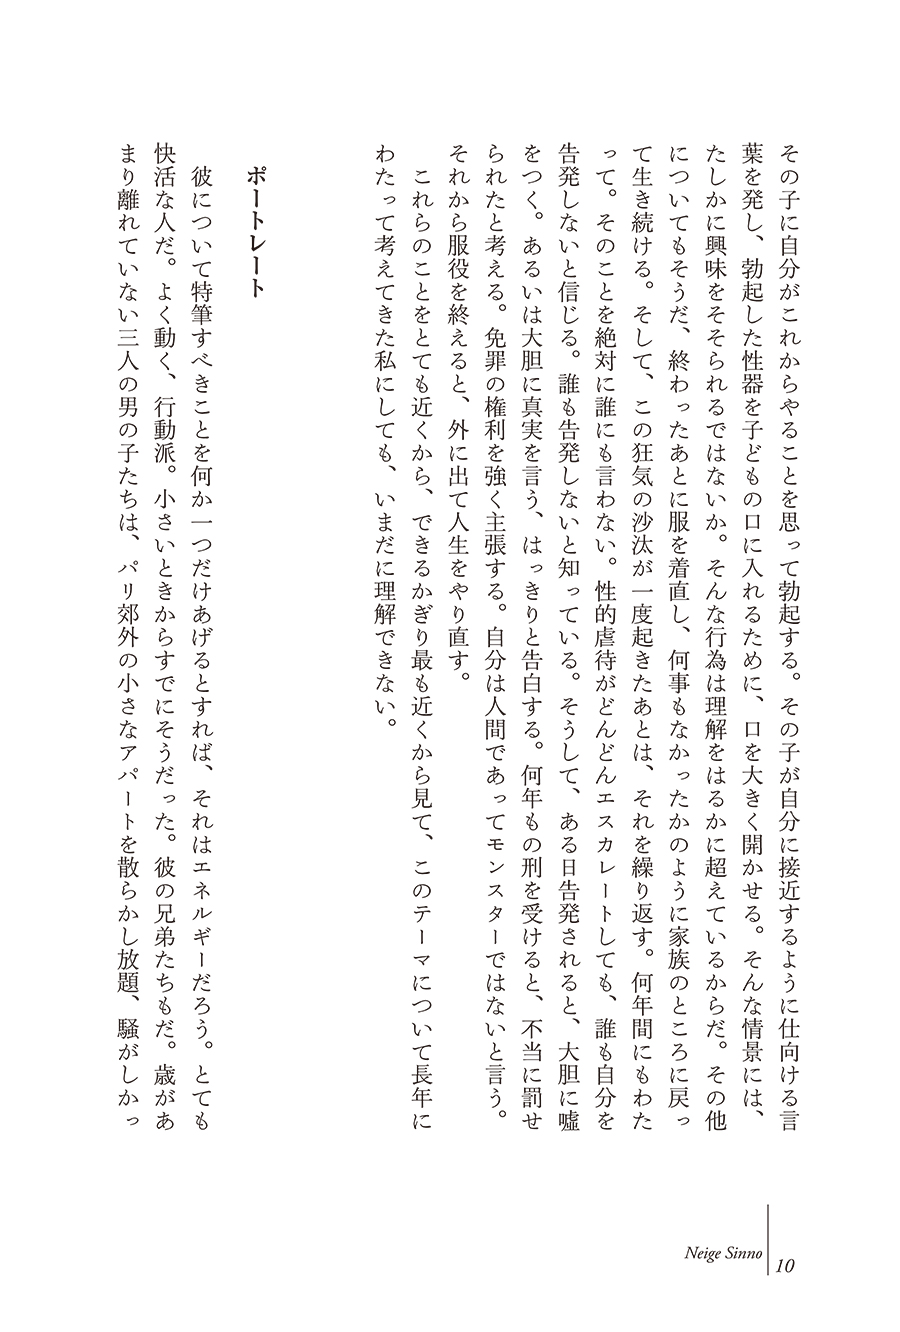 その子に自分がこれからやることを思って勃起する。その子が自分に接近するように仕向ける言
葉を発し、勃起した性器を子どもの口に入れるために、口を大きく開かせる。そんな情景には、
たしかに興味をそそられるではないか。そんな行為は理解をはるかに超えているからだ。その他
についてもそうだ、終わったあとに服を着直し、何事もなかったかのように家族のところに戻っ
て生き続ける。そして、この狂気の沙汰が一度起きたあとは、それを繰り返す。何年間にもわた
って。そのことを絶対に誰にも言わない。性的虐待がどんどんエスカレートしても、誰も自分を
告発しないと信じる。誰も告発しないと知っている。そうして、ある日告発されると、大胆に嘘
をつく。あるいは大胆に真実を言う、はっきりと告白する。何年もの刑を受けると、不当に罰せ
られたと考える。免罪の権利を強く主張する。自分は人間であってモンスターではないと言う。
それから服役を終えると、外に出て人生をやり直す。
これらのことをとても近くから、できるかぎり最も近くから見て、このテーマについて長年に
わたって考えてきた私にしても、いまだに理解できない。
ポートレート
彼について特筆すべきことを何か一つだけあげるとすれば、それはエネルギーだろう。とても
快活な人だ。よく動く、行動派。小さいときからすでにそうだった。彼の兄弟たちもだ。歳があ
まり離れていない三人の男の子たちは、パリ郊外の小さなアパートを散らかし放題、騒がしかっ
Neige Sinno
10